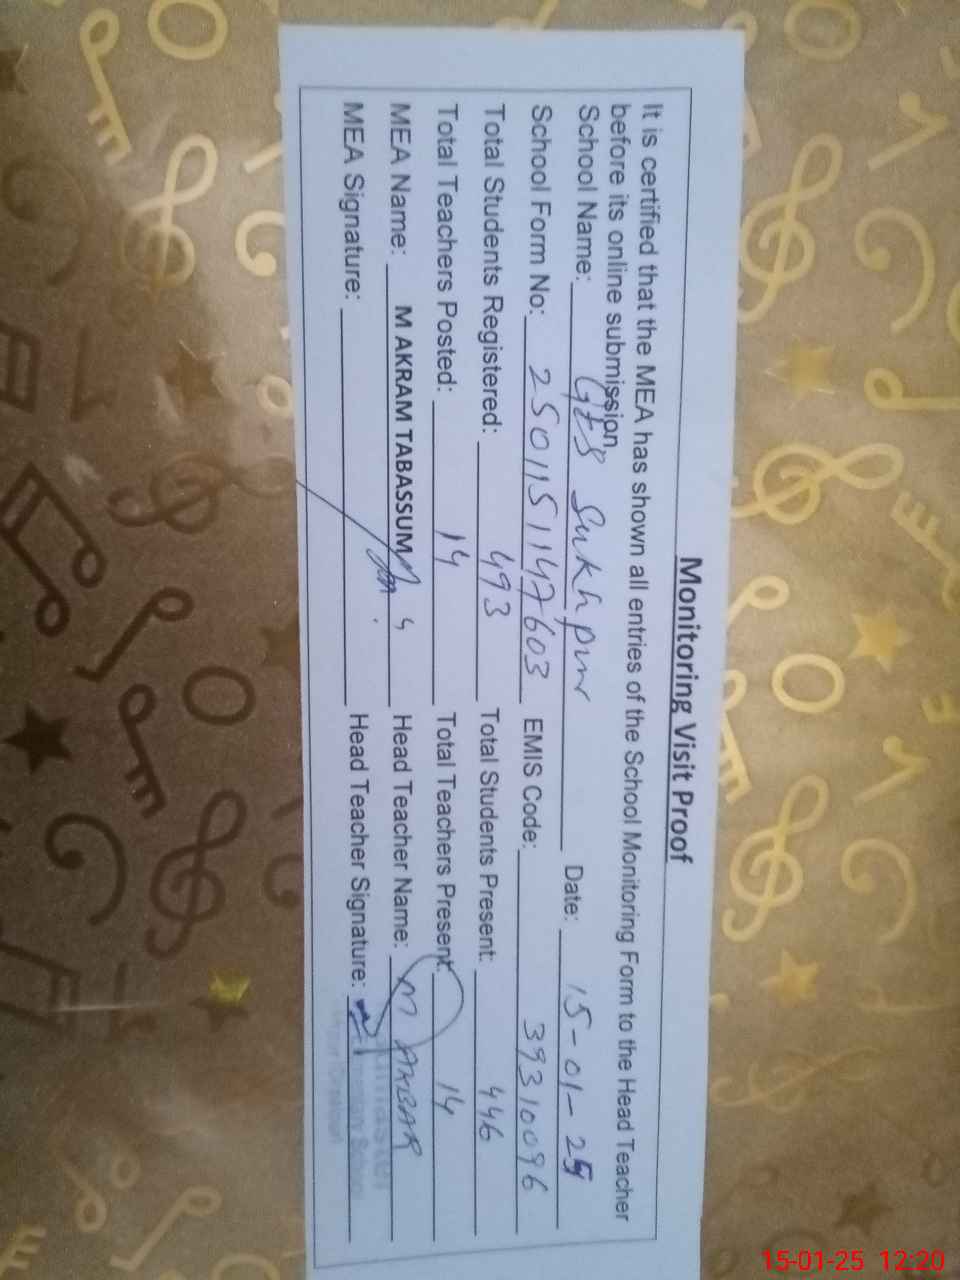 Monitoring Visit Proof
It is certified that the MEA has shown all entries of the School Monitoring Form to the Head Teacher
before its online submission.
School Name: GES Sukhpur Date: 15-01-25
School Form No: 2501151147603 EMIS Code: 39310096
Total Students Registered: 493 Total Students Present: 446
Total Teachers Posted: 14 Total Teachers Present: 14
MEA Name: M AKRAM TABASSUM Head Teacher Name: M AKBAR
MEA Signature: Head Teacher Signature:
15-01-25 12:20